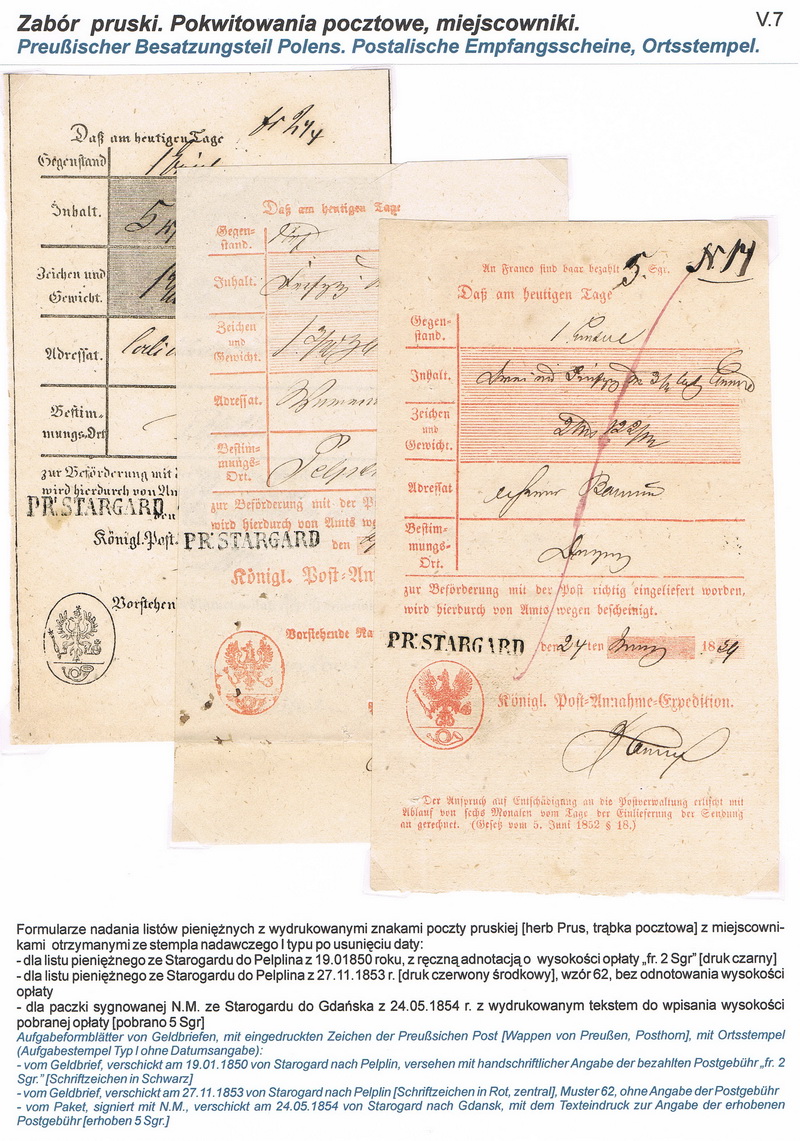 Zabór pruski. Pokwitowania pocztowe, miejscowniki.
V.7
Preußischer Besatzungsteil Polens. Postalische Empfangsscheine, Ortsstempel.
Daß am heutigen Tage
Gegenstand
Inhalt.
Zeichen und
Gewicht.
Adressat.
Bestim-
mungs-Ort
zur Beförderung mit
wird hierdurch von
PR: STARGARD
Königl. Post
Vorstehen
Daß am heutigen Tage
Gegen-
stand.
Inhalt.
Zeichen
und
Gewicht.
Adressat.
Bestim-
mungs-
Ort.
Pelplin
zur Beförderung mit der
wird hierdurch von Amts
PR: STARGARD den
Königl. Post-An
Vorstehende
An Franco sind baar bezahlt 5. Sgr.
Daß am heutigen Tage
Gegen-
stand.
Inhalt.
Zeichen
und
Gewicht.
Adressat
Bestim-
mungs-
Ort.
zur Beförderung mit der Post richtig eingeliefert worden,
wird hierdurch von Amts wegen bescheinigt.
PR: STARGARD den 24 ten 18 54
Königl. Post-Annahme-Expedition.
Der Anspruch auf Entschädigung an die Postverwaltung erlischt mit
Ablauf von sechs Monaten vom Tage der Einlieferung der Sendung
an gerechnet. (Gesetz vom 5. Juni 1852 § 18.)
Formularze nadania listów pieniężnych z wydrukowanymi znakami poczty pruskiej [herb Prus, trąbka pocztowa] z miejscowni-
kami otrzymanymi ze stempla nadawczego I typu po usunięciu daty:
- dla listu pieniężnego ze Starogardu do Pelplina z 19.01850 roku, z ręczną adnotacją o wysokości opłaty „fr. 2 Sgr" [druk czarny]
- dla listu pieniężnego ze Starogardu do Pelplina z 27.11.1853 r. [druk czerwony środkowy], wzór 62, bez odnotowania wysokości
opłaty
- dla paczki sygnowanej N.M. ze Starogardu do Gdańska z 24.05.1854 r. z wydrukowanym tekstem do wpisania wysokości
pobranej opłaty [pobrano 5 Sgr]
Aufgabeformblätter von Geldbriefen, mit eingedruckten Zeichen der Preußsichen Post [Wappen von Preußen, Posthom], mit Ortsstempel
(Aufgabestempel Typ I ohne Datumsangabe):
- vom Geldbrief, verschickt am 19.01.1850 von Starogard nach Pelplin, versehen mit handschriftlicher Angabe der bezahlten Postgebühr „fr. 2
Sgr." [Schriftzeichen in Schwarz]
- vom Geldbrief, verschickt am 27.11.1853 von Starogard nach Pelplin [Schriftzeichen in Rot, zentral], Muster 62, ohne Angabe der Postgebühr
- vom Paket, signiert mit N.M., verschickt am 24.05.1854 von Starogard nach Gdansk, mit dem Texteindruck zur Angabe der erhobenen
Postgebühr [erhoben 5 Sgr.]